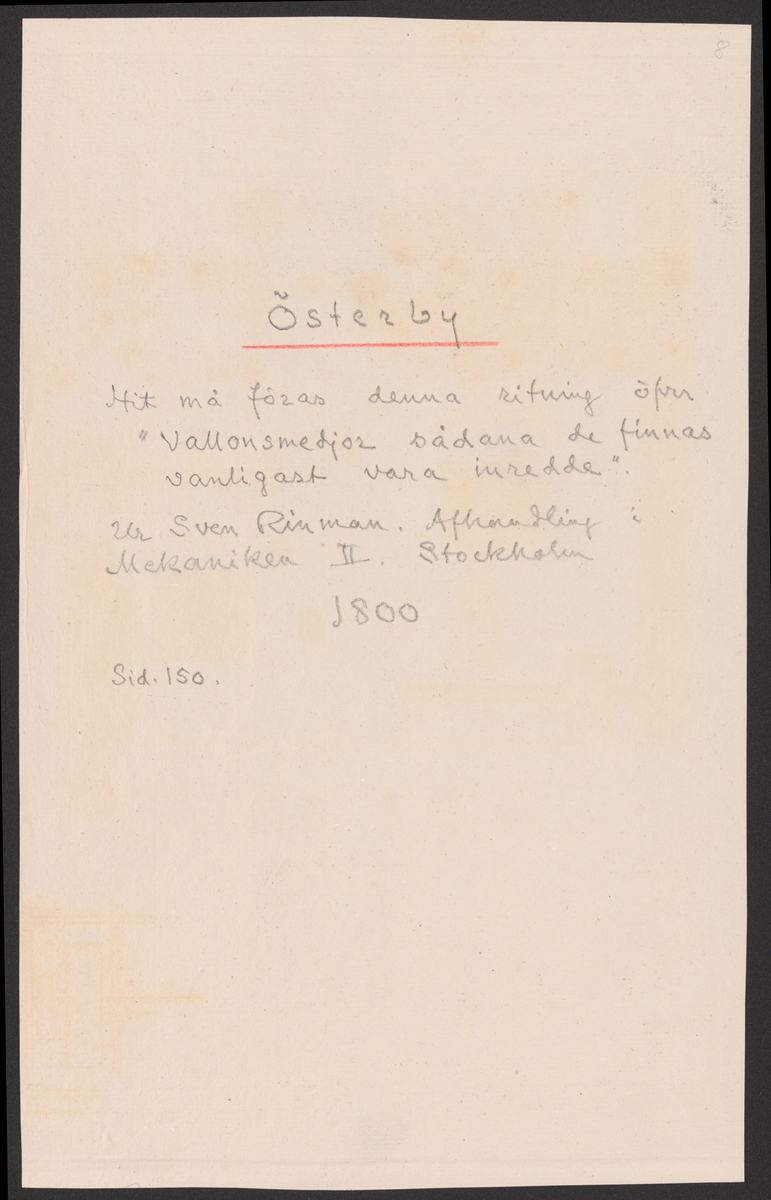 8
Österby
Hit må föras denna ritning öfver
"Vallonsmedjor sådana de finnas
vanligast vara inredde".
Ur Sven Rinman. Afhandling i
Mekaniken II. Stockholm
1800
Sid. 150.